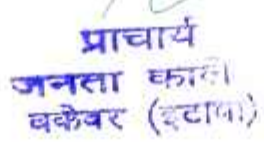 प्राचार्य
जनता
बकेवर (इटावा)